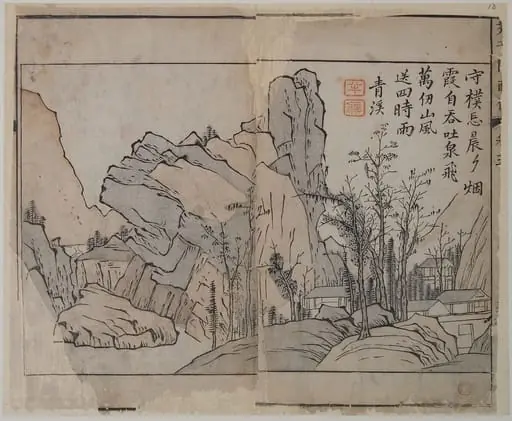 守樸忘晨夕烟
霞自吞吐泉飛
萬仞山風
送四時雨
青溪